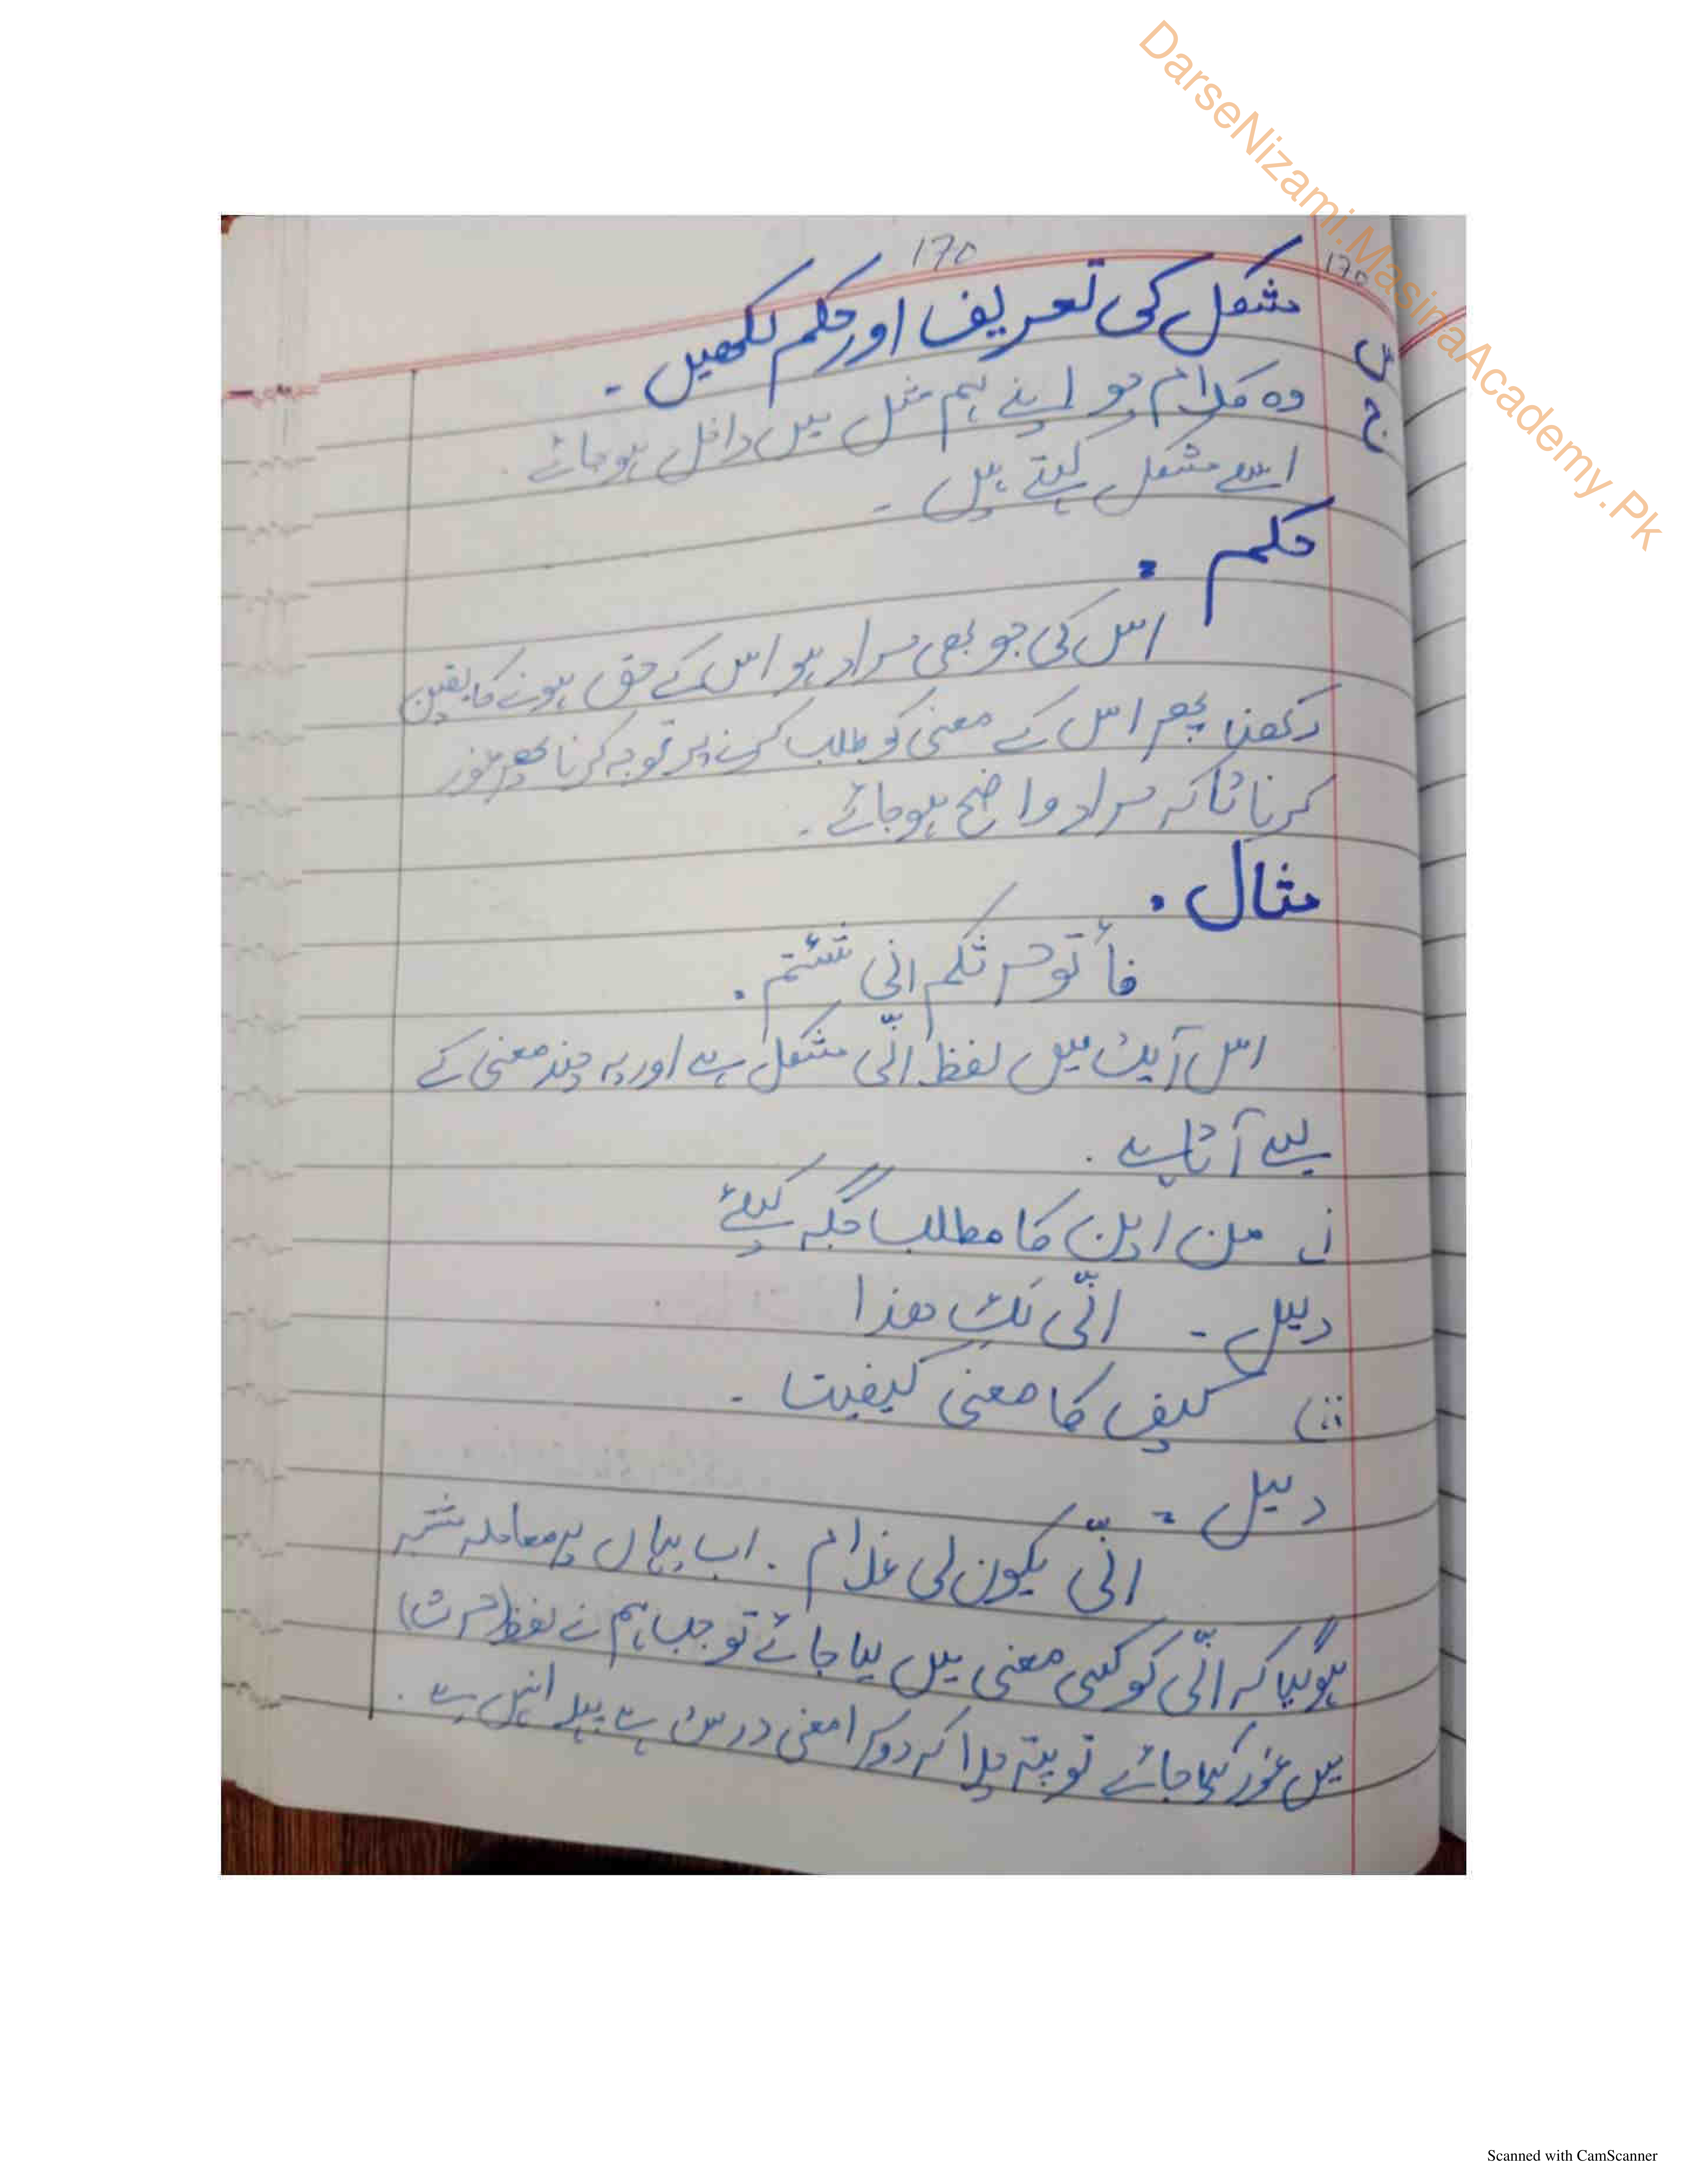 DarseNizami.MasinaAcademy.Pk
170
170
س مشکل کی تعریف اور حکم لکھیں ۔
ج وہ کلام جو اپنے ہم مثل میں داخل ہو جائے
اسے مشکل کہتے ہیں ۔
حکم :
اس کی جو بھی مراد ہو اس کے حق ہونے کا یقین
رکھنا پھر اس کے معنی کو طلب کرنے پر توجہ کرنا پھر غور
کرنا تاکہ مراد واضح ہو جائے ۔
مثال .
فأتو حرثکم انی شئتم .
اس آیت میں لفظ انّٰی مشکل ہے اور یہ چند معنی کے
لیے آتا ہے .
i من این کا مطلب جگہ کیلئے
دلیل ۔ انّٰی لَکِ ھذا
ii) کیف کا معنی کیفیت ۔
دلیل =
انّٰی یکون لی غلام . اب یہاں پہ معاملہ مشتبہ
ہو گیا کہ انّٰی کو کس معنی میں لیا جائے تو جب ہم نے لفظ (حرث)
میں غور کیا جائے تو پتہ چلا کہ دوسرا معنی درست ہے پہلا نہیں ہے .
Scanned with CamScanner